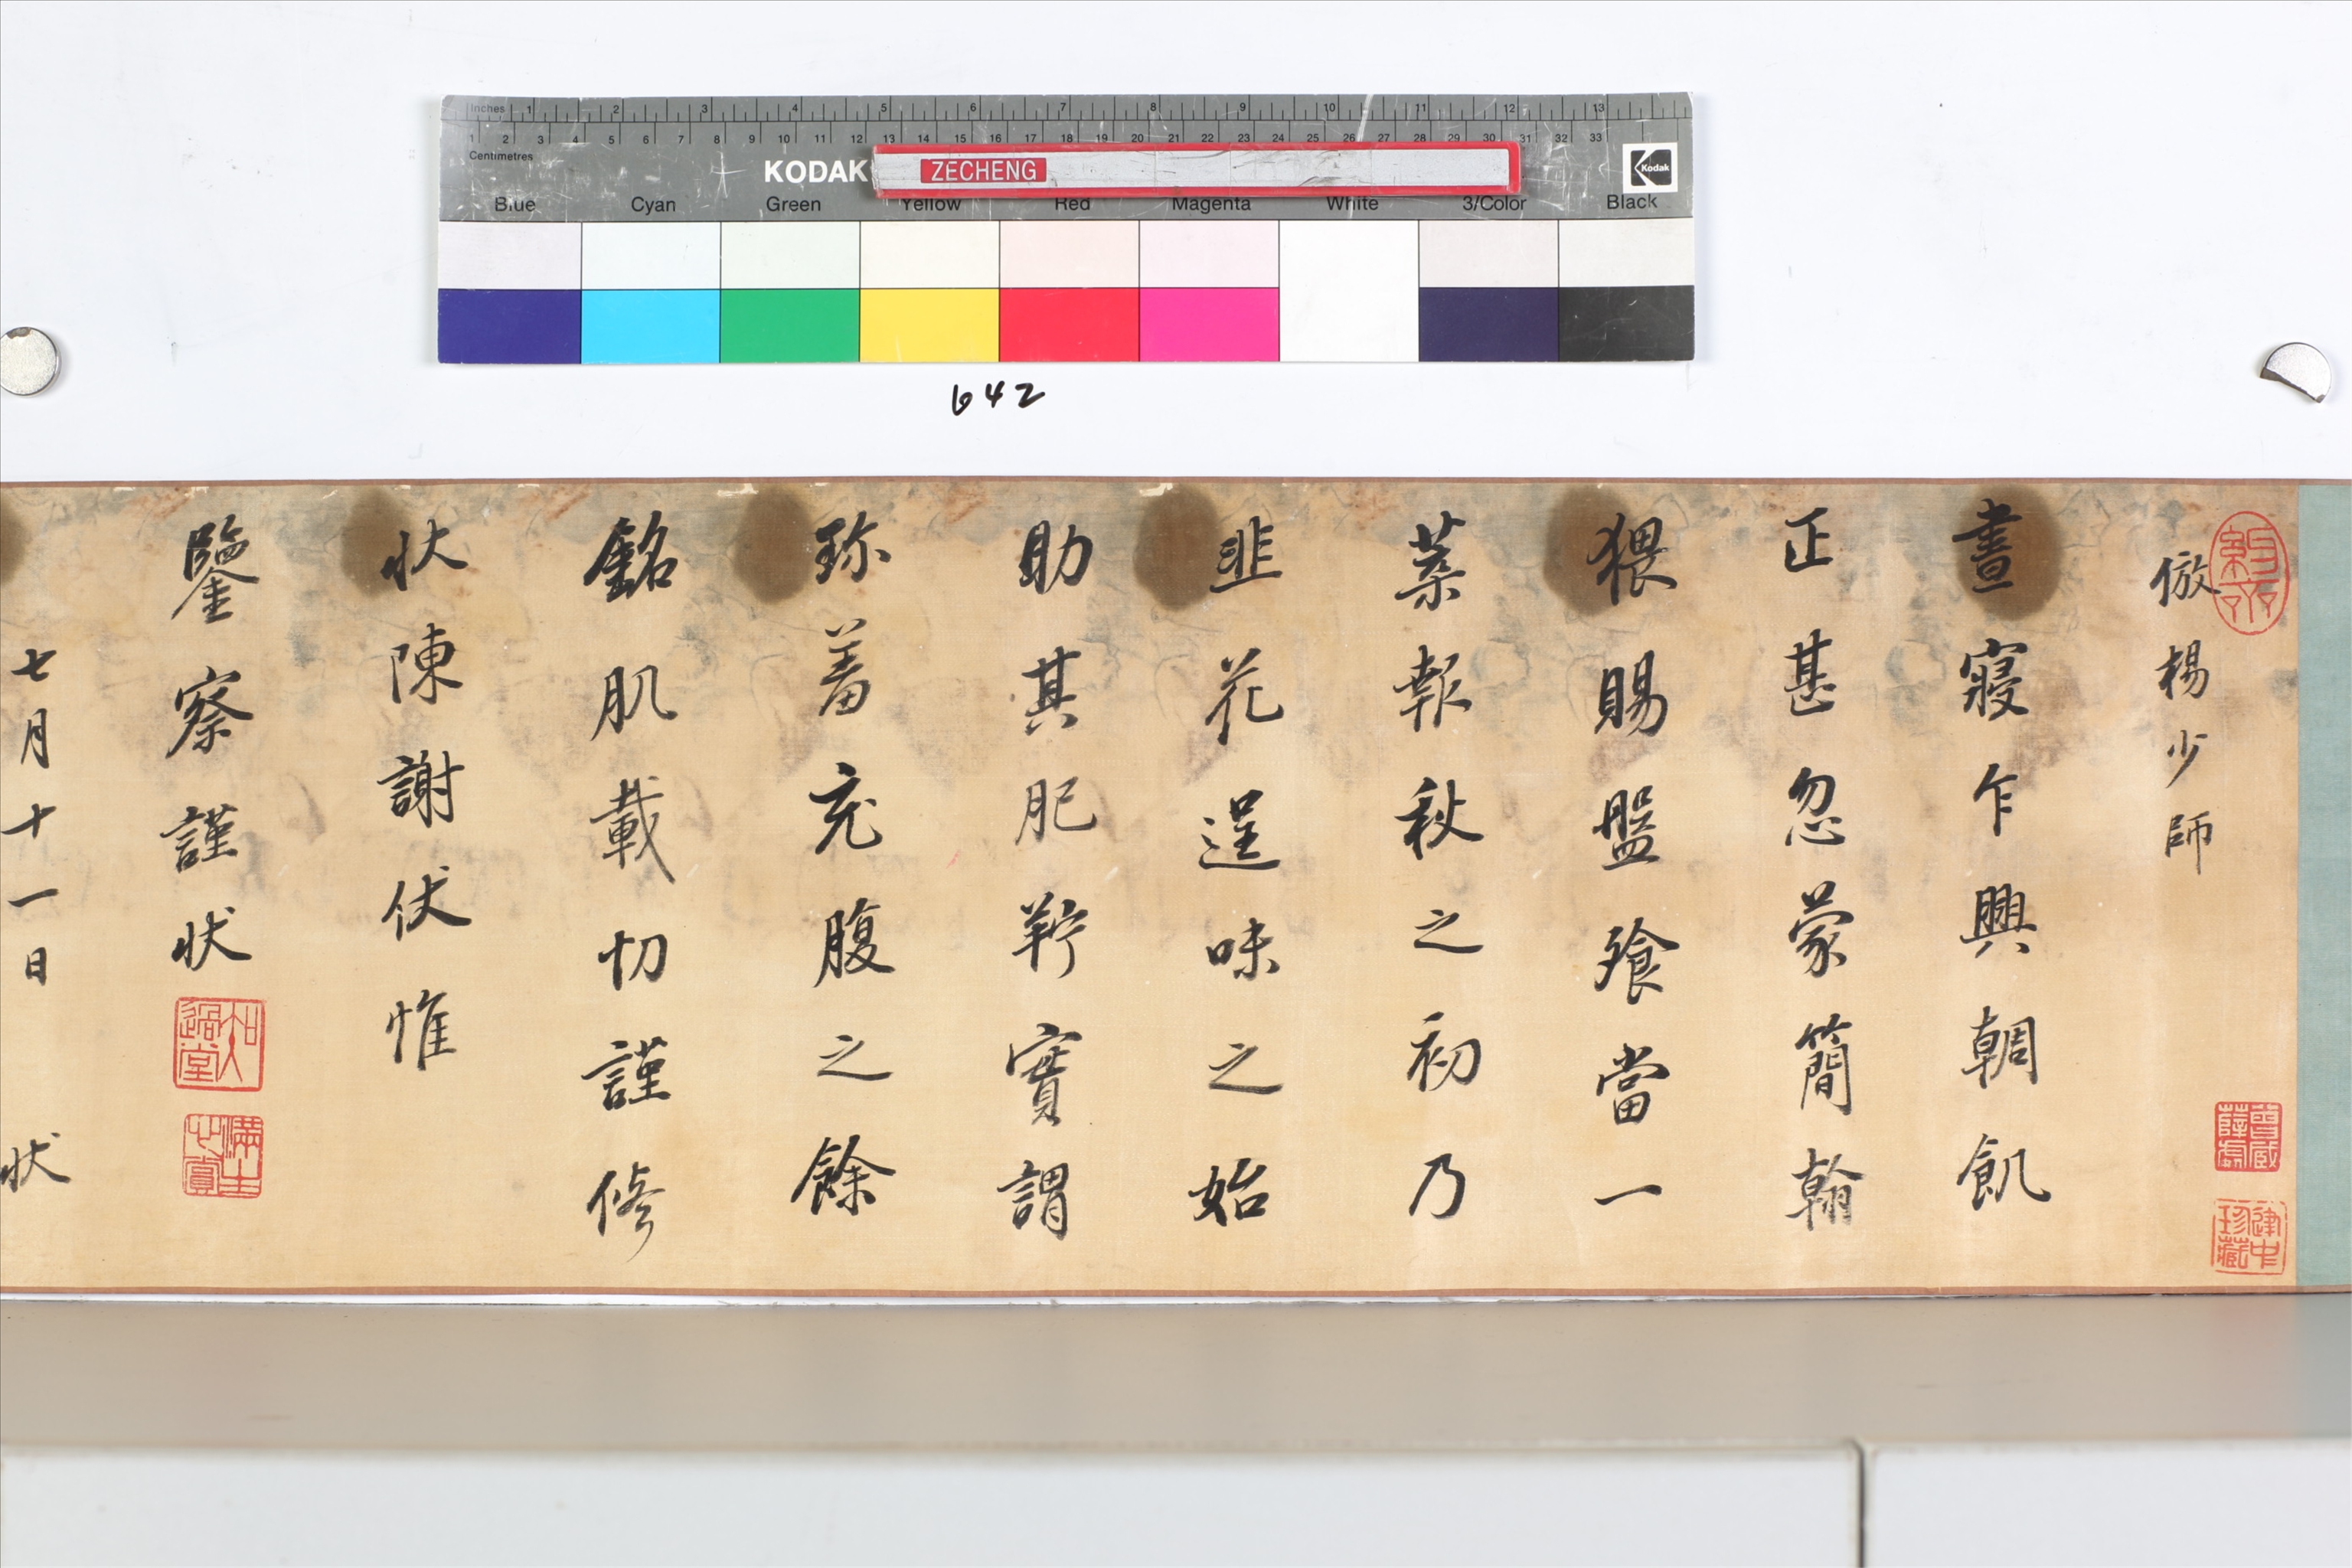 Inches 1 2 3 4 5 6 7 8 9 10 11 12 13
1 2 3 4 5 6 7 8 9 10 11 12 13 14 15 16 17 18 19 20 21 22 23 24 25 26 27 28 29 30 31 32 33
Centimetres
KODAK
ZECHENG
Kodak
Blue Cyan Green Yellow Red Magenta White 3/Color Black
642
倣楊少師
晝寢乍興朝飢
正甚忽蒙簡翰
猥賜盤飧當一
葉報秋之初乃
韭花逞味之始
助其肥羜實謂
珎羞充腹之餘
銘肌載切謹修
状陳謝伏惟
鑒察謹状
知過堂
滿生心賞
七月十一日 状
曾藏薛氏
建中珍藏